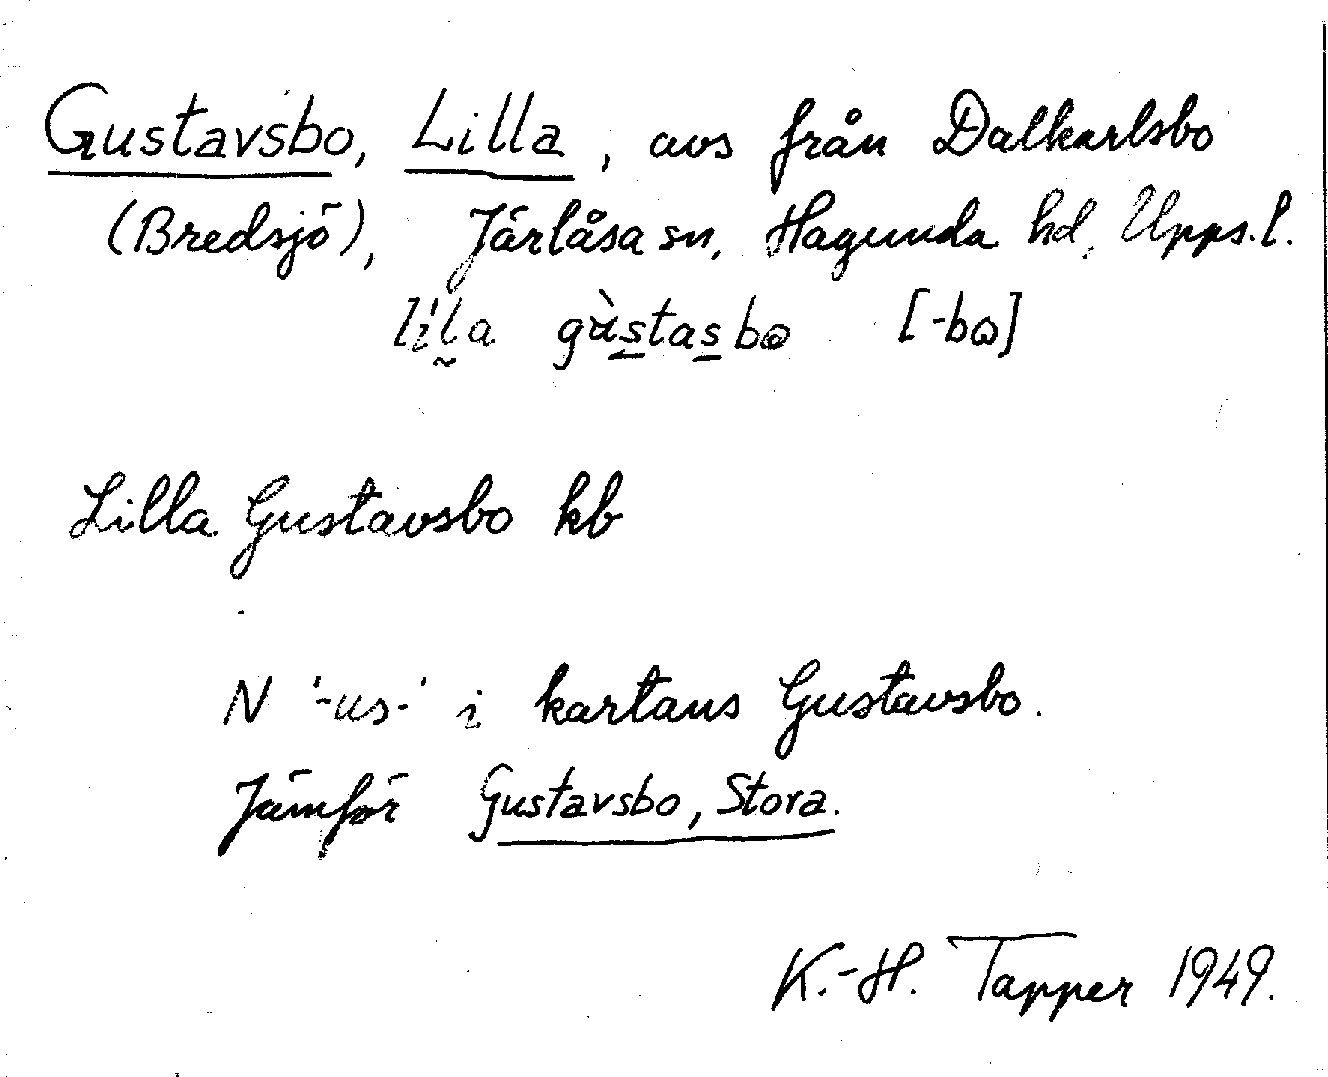 Gustavsbo, Lilla, avs från Dalkarlsbo
(Bredsjö), Järlåsa sn, Hagunda hd, Upps.l.
Lilla Gustavsbo kb
N '-us-' i kartans Gustavsbo.
Jämför Gustavsbo, Stora.
K.-H. Tapper 1949.